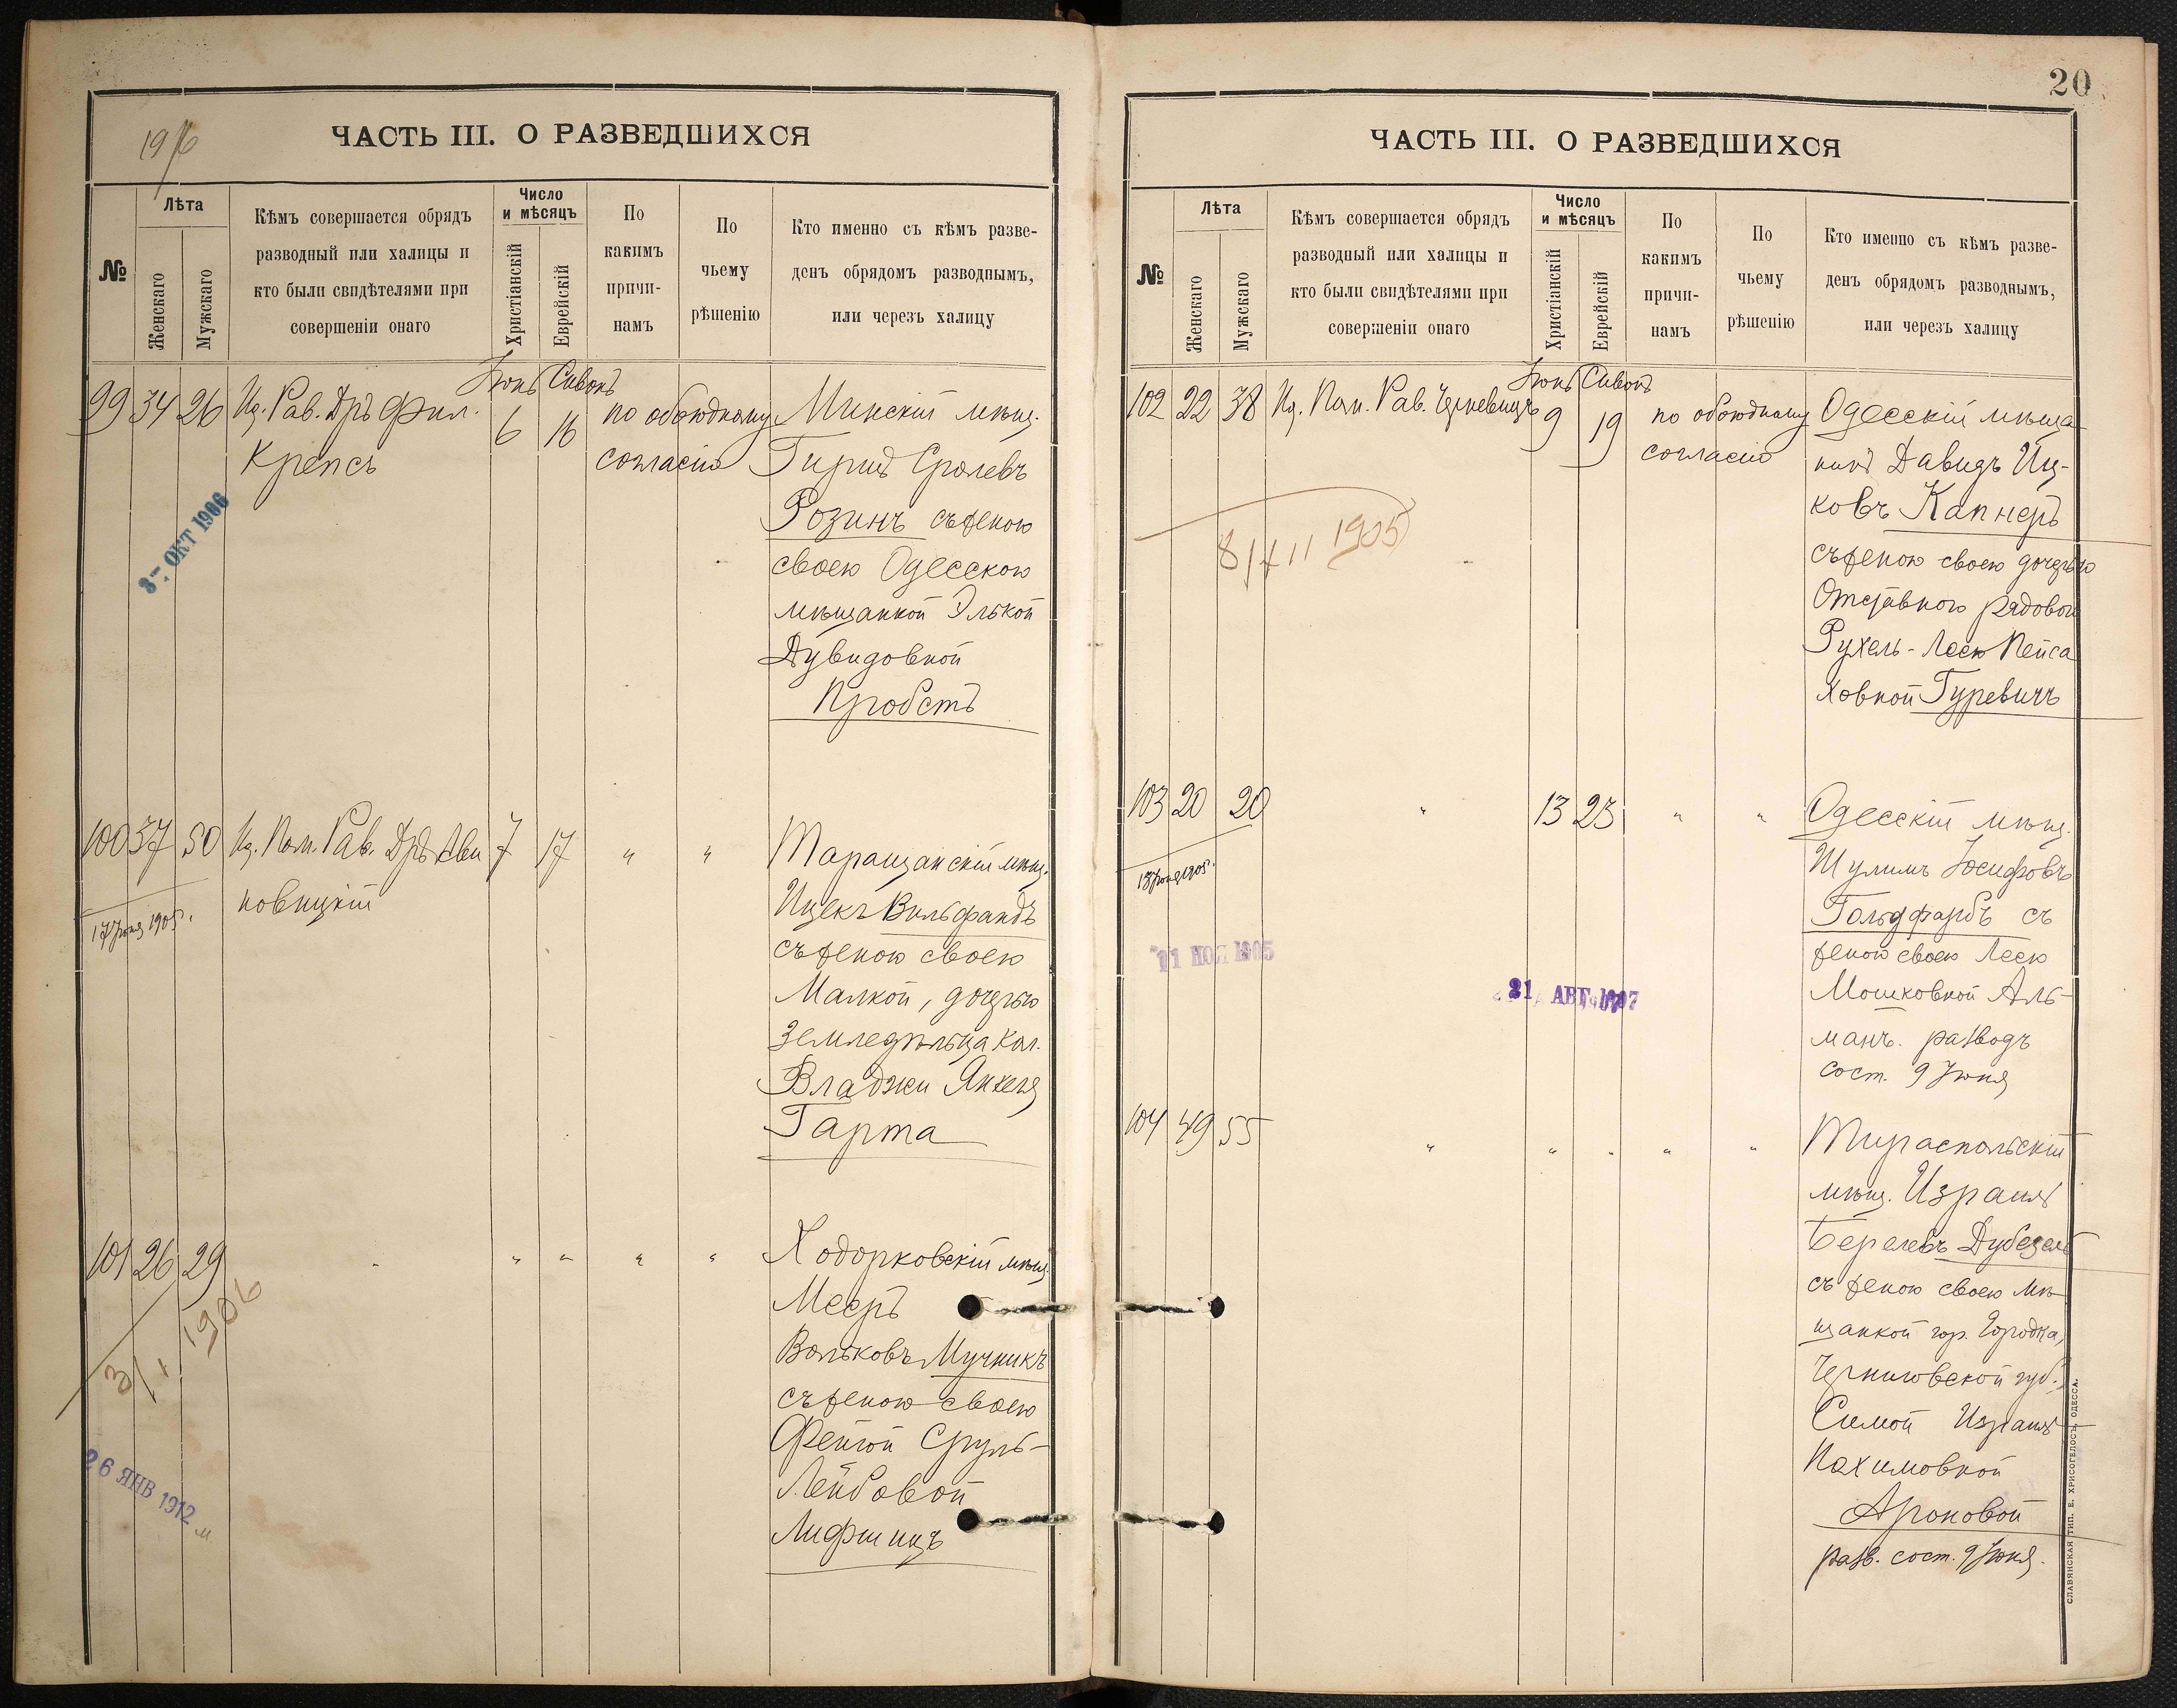 ЧАСТЬ III. О РАЗВЕДШИХСЯ
№
Лѣта
Женскаго
Мужскаго
Кѣмъ совершается обрядъ
разводный или халицы и
кто были свидѣтелями при
совершеніи онаго
Число
и мѣсяцъ
Христіанскій
Еврейскій
По
какимъ
причи-
намъ
По
чьему
рѣшенію
Кто именно съ кѣмъ разве-
денъ обрядомъ разводнымъ,
или черезъ халицу
Іюнь Сивонъ
99 34 26 Рав. Дръ Фил.
Крепсъ
6 16
по обоюдному
согласію
Минскій мѣщ.
Гиршъ Сролевъ
Розинъ съ женою
своею Одесскою
мѣщанкой Элькой
Дувидовной
Пробстъ
ОКТ 1906
100 37 50 Пом. Рав. Дръ Ави
новицкій
7 17 " "
17 Іюня 1905 г.
Таращанскій мѣщ.
Ицекъ Вильфандъ
съ женою своею
Малкой, дочерью
земледѣльца кол.
Владжи Янкеля
Гарта
101 26 29 " " " " "
1906
26 ЯНВ 1912
Ходорковскій мѣщ.
Мееръ
Вольковъ Мучникъ
съ женою своею
Фейгой Сруль-
Лейбовой
Лифшицъ
20
ЧАСТЬ III. О РАЗВЕДШИХСЯ
№
Лѣта
Женскаго
Мужскаго
Кѣмъ совершается обрядъ
разводный или халицы и
кто были свидѣтелями при
совершеніи онаго
Число
и мѣсяцъ
Христіанскій
Еврейскій
По
какимъ
причи-
намъ
По
чьему
рѣшенію
Кто именно съ кѣмъ разве-
денъ обрядомъ разводнымъ,
или черезъ халицу
Іюнь Сивонъ
102 22 38 Пом. Рав.
9 19
по обоюдному
согласію
8/XII 1905
Одесскій мѣща-
нинъ Давидъ Иц-
ковъ Капнеръ
съ женою своею дочерью
Отставного рядового
Рухель-Леею Пейса
ховной Гуревичъ
103 20 20 " 13 23 " "
13 Іюня 1905 г.
11 НОЯ 1905
21 АВГ 1907
Одесскій мѣщ.
Шулимъ Іосифовъ
Гольдфарбъ съ
женою своею Леею
Мошковной Аль-
манъ. разводъ
сост. 9 Іюня
104 49 55 " " " " "
Тираспольскій
мѣщ. Израиль
Берелевъ
съ женою своею мѣ
щанкой гор. Городка,
Черниговской губ.
Симой Израиль
Нахимовной
Ароновой
разв. сост. 9 Іюня.
СЛАВЯНСКАЯ ТИП. Е. ХРИСОГЕЛОСЪ, ОДЕССА.